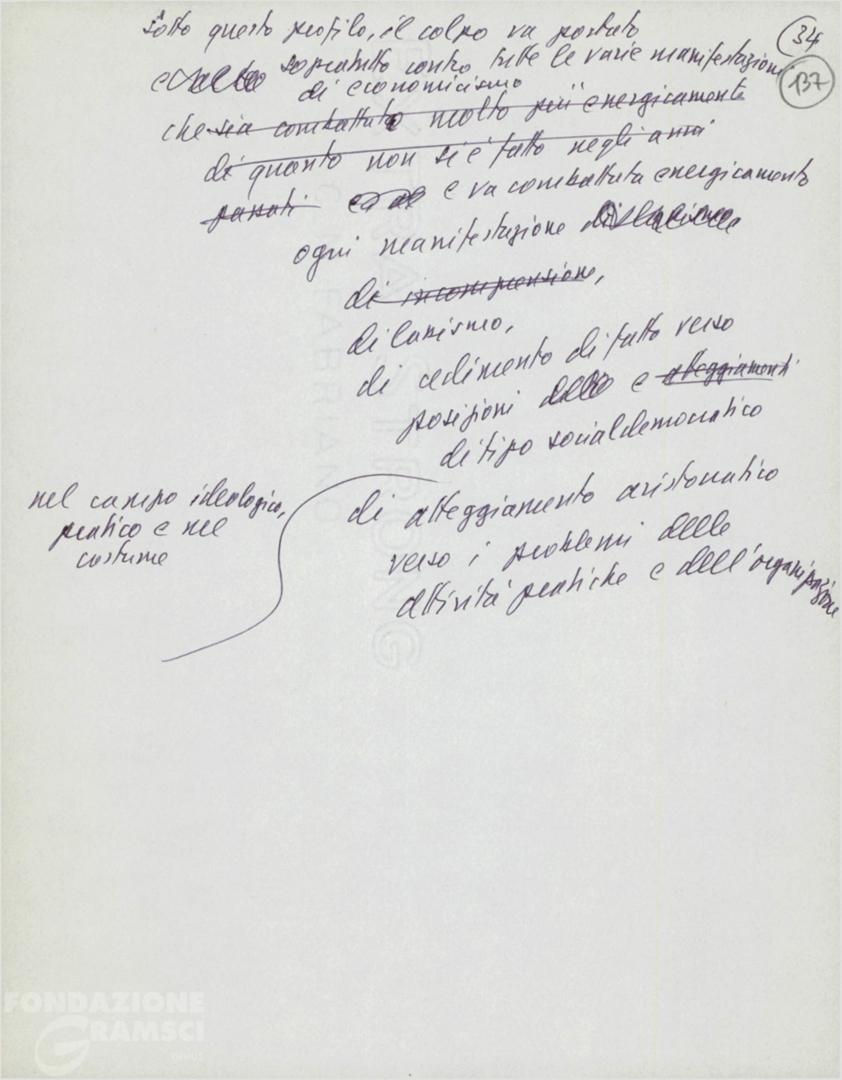 sotto questo profilo, il colpo va portato
34
137
sopratutto contro tutte le varie manifestazioni
di economicismo
che sia combattuto molto più energicamente
di quanto non si è fatto negli anni
passati e va combattuta energicamente
ogni manifestazione
di incomprensione,
di lassismo,
di cedimento di fatto verso
posizioni e atteggiamenti
di tipo socialdemocratico
di atteggiamento aristocratico
verso i problemi delle
attività pratiche e dell'organizzazione
nel campo ideologico,
pratico e nel
costume
FABRIANO
FONDAZIONE
GRAMSCI